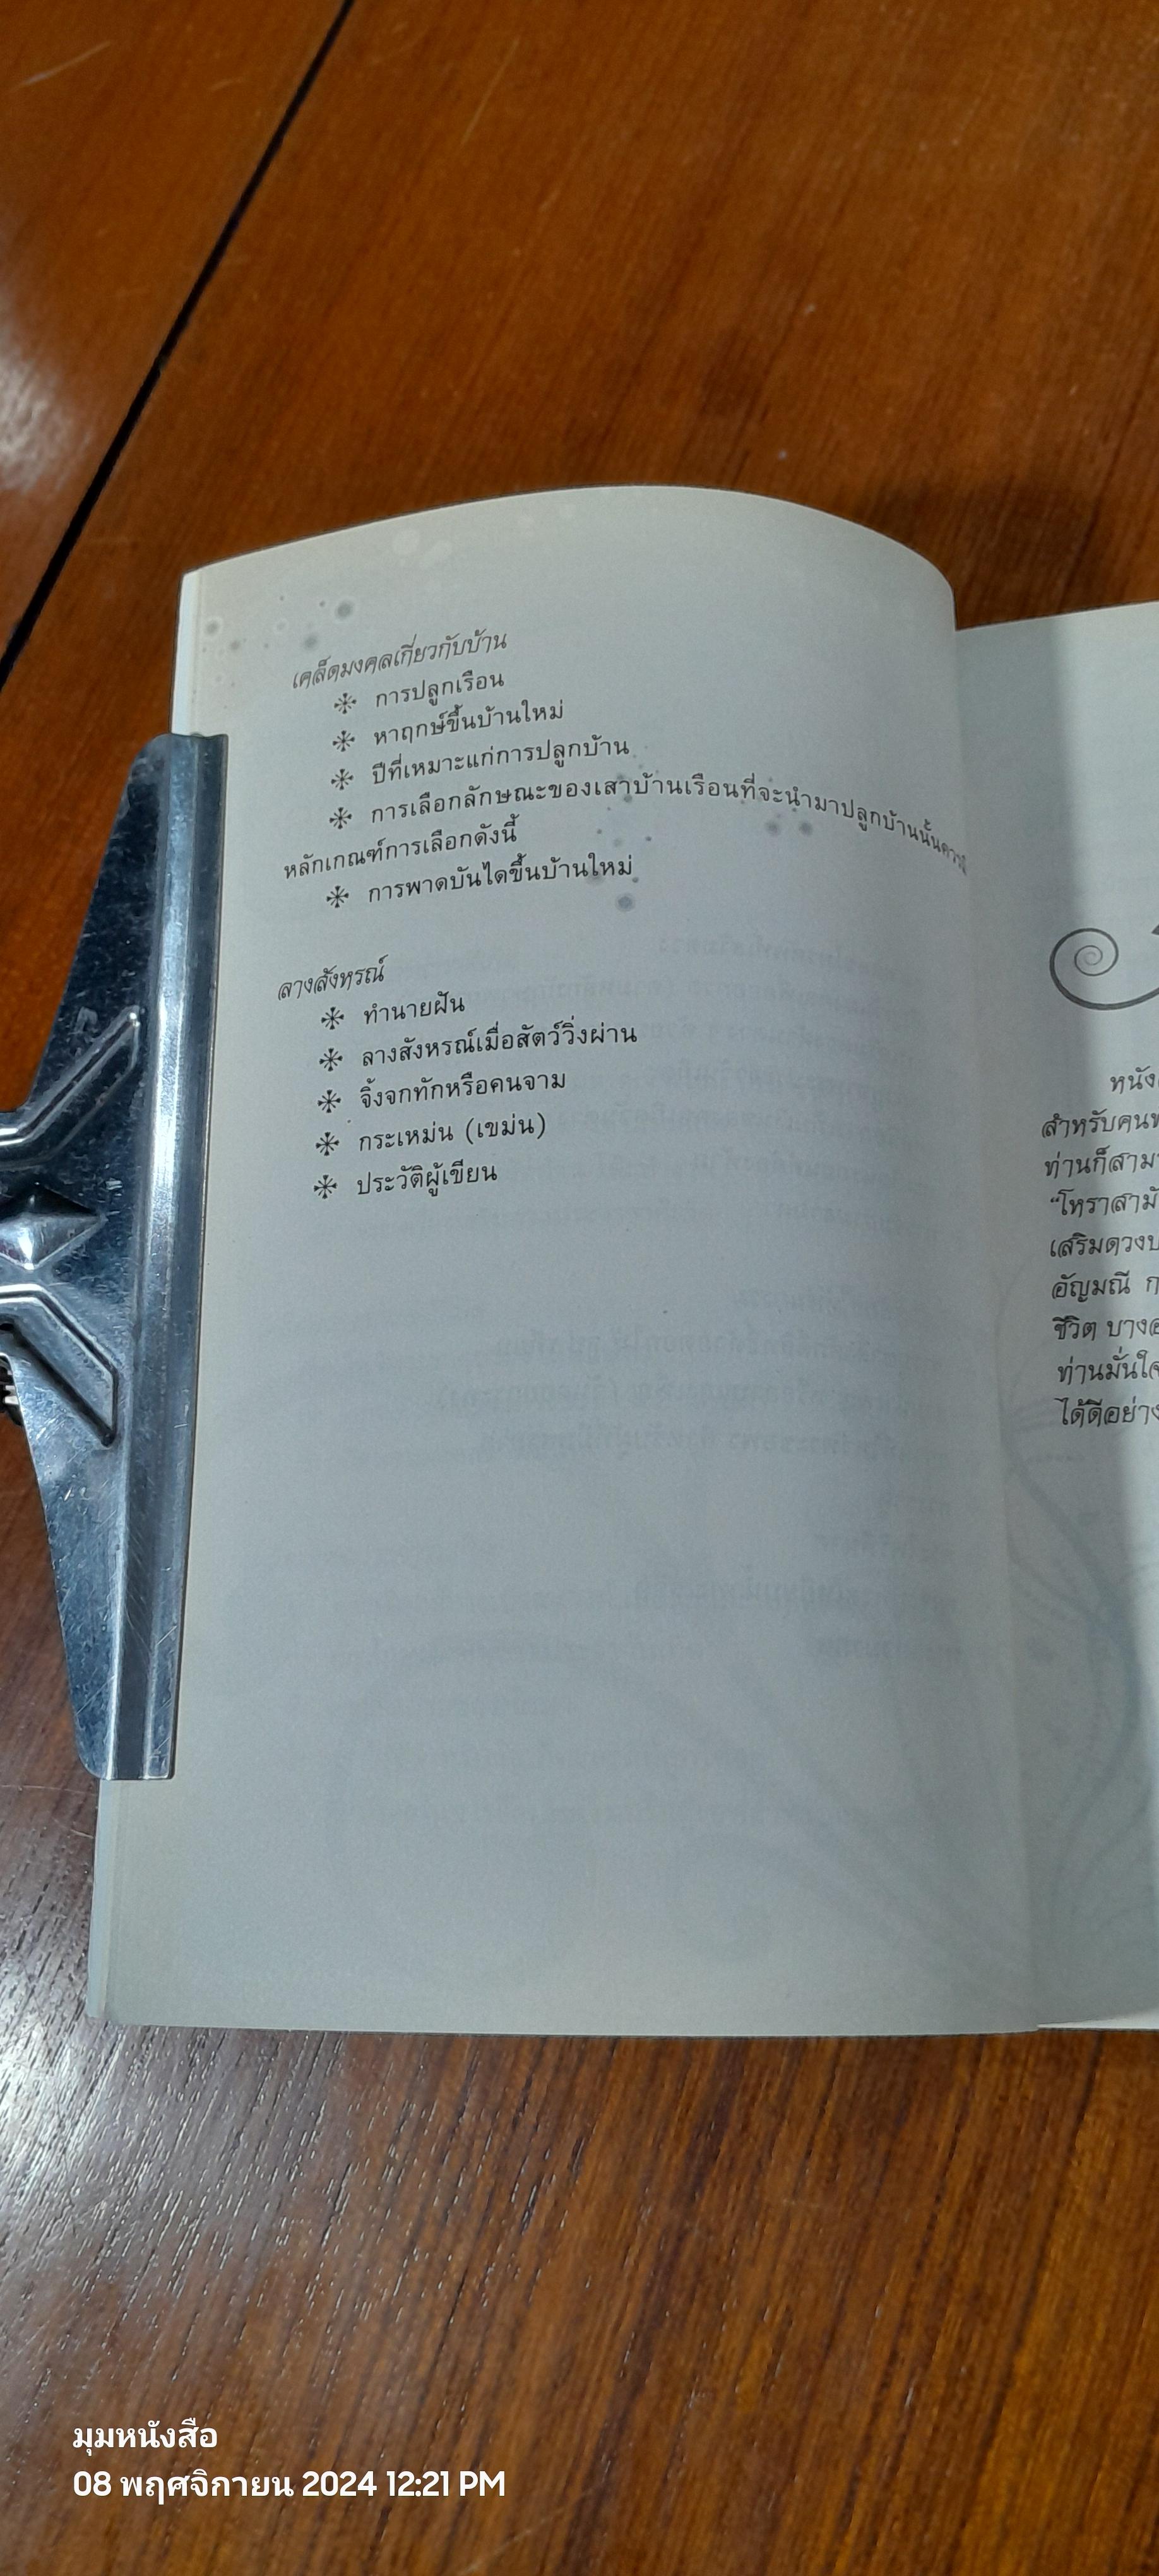 เคล็ดมงคลเกี่ยวกับบ้าน
การปลูกเรือน
หาฤกษ์ขึ้นบ้านใหม่
ปีที่เหมาะแก่การปลูกบ้าน
การเลือกลักษณะของเสาบ้านเรือนที่จะนำมาปลูกบ้านนั้น
หลักเกณฑ์การเลือกดังนี้
การพาดบันไดขึ้นบ้านใหม่
ลางสังหรณ์
ทำนายฝัน
ลางสังหรณ์เมื่อสัตว์วิ่งผ่าน
จิ้งจกทักหรือคนจาม
กระเหม่น (เขม่น)
ประวัติผู้เขียน
หนัง
สำหรับคน
ท่านก็สาม
“โหราสา
เสริมดวง
อัญมณี ก
ชีวิต บาง
ท่านมั่นใจ
ได้ดีอย่าง
มุมหนังสือ
08 พฤศจิกายน 2024 12:21 PM